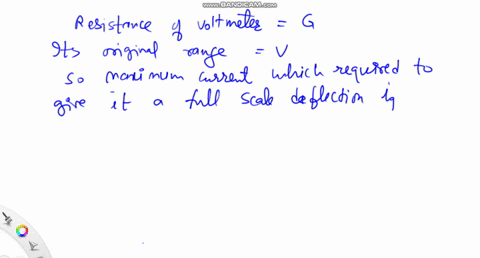 WWW.BANDICAM.COM
Resistance of voltmeter = G
Its original range = V
So maximum current which required to
give it a full scale deflection is